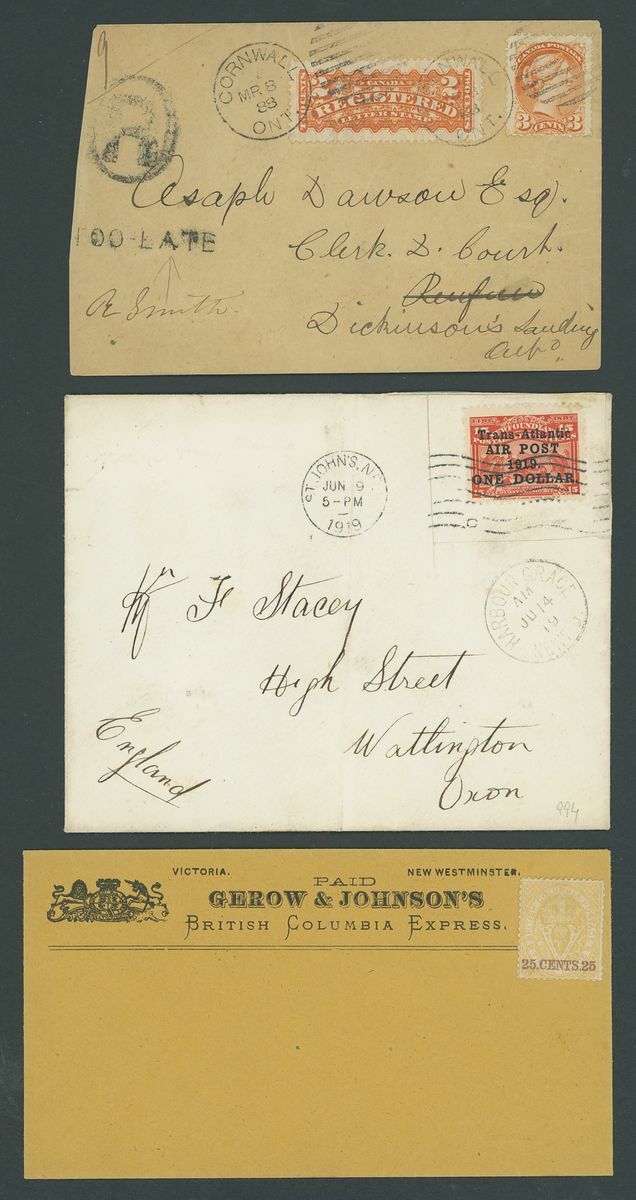 CORNWALL
MR 8
88
ONT.
2 CANADA 2
REGISTERED
LETTER STAMP
CANADA POSTAGE
3 CENTS 3
R
TOO-LATE
R Smith.
Asaph Dawson Esq.
Clerk. D. Court.
Renfrew
Dickinson's Landing
Ont.
ST. JOHN'S, N
JUN 9
5-PM
1919
15 15
Trans-Atlantic
AIR POST
1919.
ONE DOLLAR.
15 15
HARBOUR GRACE
AM
JU 14
19
NEWF'D
F Stacey
High Street
Watlington
Oxon
England
994
VICTORIA. NEW WESTMINSTER.
PAID
GEROW & JOHNSON'S
BRITISH COLUMBIA EXPRESS.
25.CENTS.25